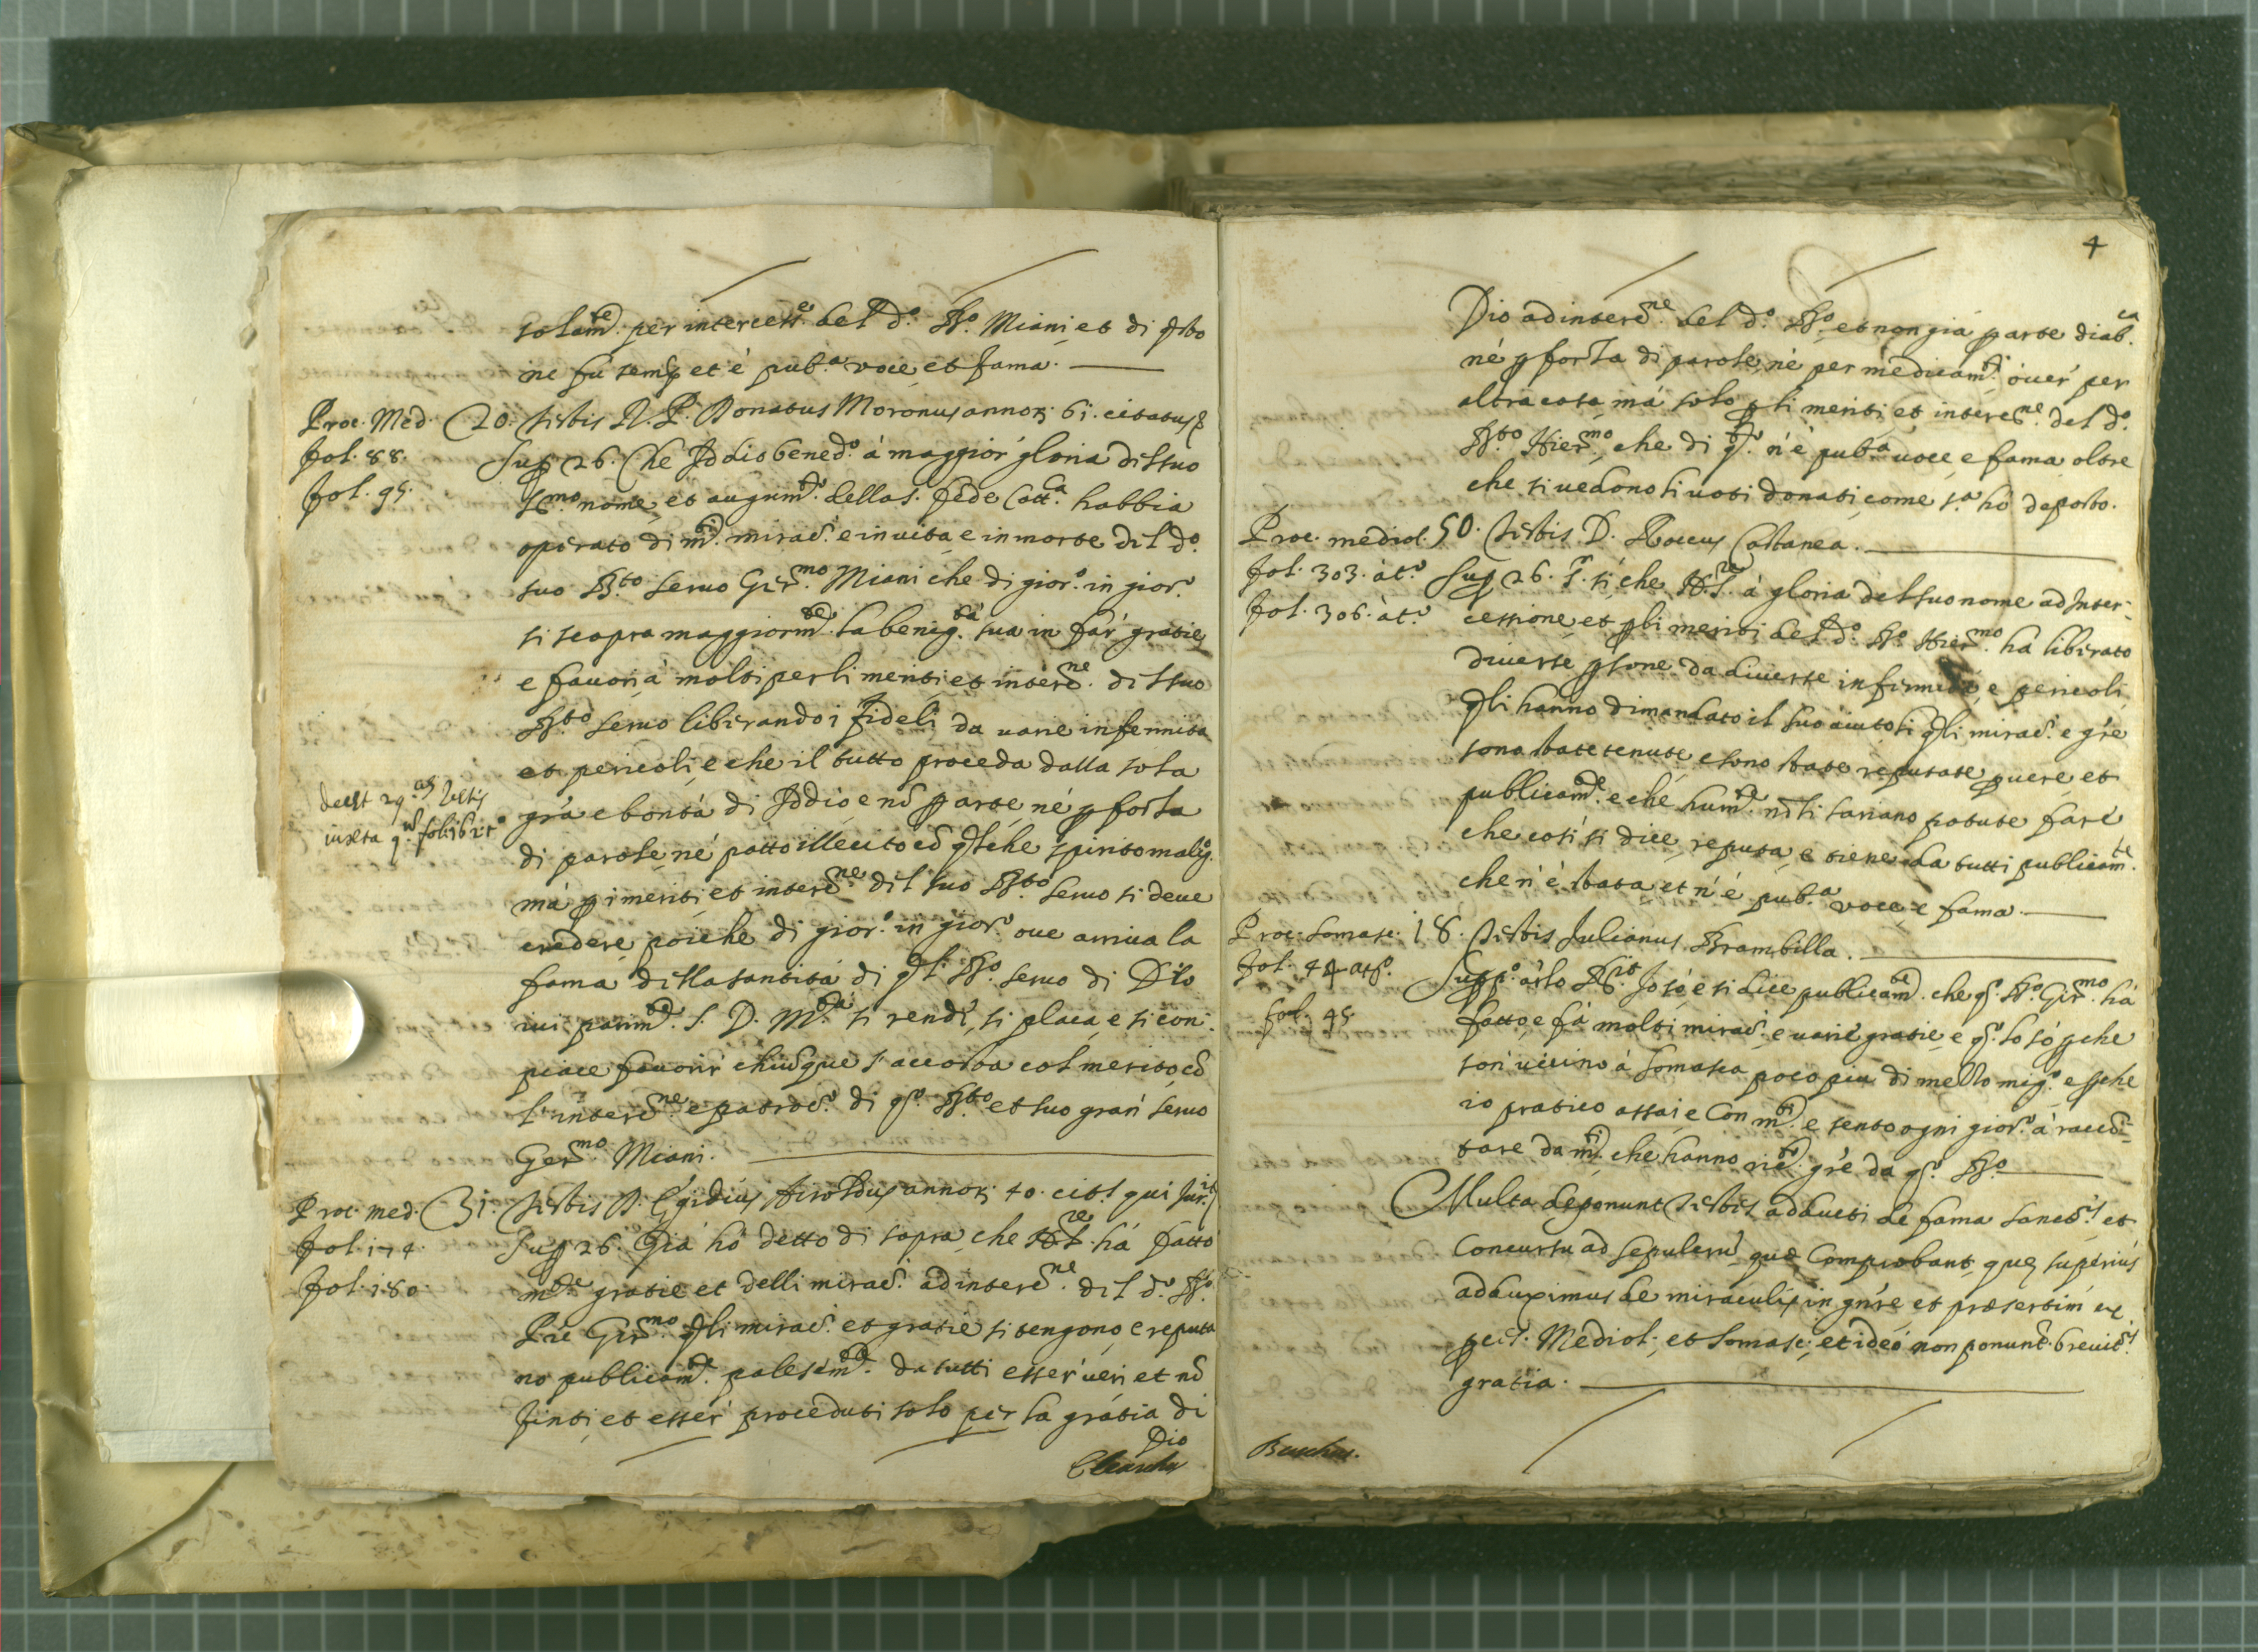 solam.te per intercess.e del d.o B.o Miani et di q.sto
ne fu semp et è pub.a voce, et fama.
Proc. Med. 20. testis R. P. Donatus Moronus annor. 61. citatus
fol. 88. Sup 26. Che Iddio bened.o à maggior gloria del suo
fol. 95. S.mo nome, et augum.to della s. fede Catt.ca habbia
operato di m.ti mirac. e in uita, e in morte del d.o
suo B.to seruo Gir.mo Miani che di gior.o in gior.o
si scopra maggiorm.te la benig.tà sua in far gratie,
e fauori à molti per li meriti et interc.ne del suo
B.to seruo liberando i fideli da uarie infermita
et pericoli, e che il tutto proceda dalla sola
deest 29.us testis
iuxta q.m fol. 162 t.o
gra e bontà di Iddio e nō p arte, né p forza
di parole, né patto illecito cō qlche spirito malig.
mà p i meriti, et interc.ne del suo B.to seruo si deue
credere, poiche di gior.o in gior.o oue arriua la
fama della santità di ql B.o seruo di Dio
iui parim.te S. D. M.tà si rende, si placa, e si com-
piace fauorir chiūque s'accosta col merito cō
l'interc.ne e patroc.o di q.o B.to et suo gran seruo
Ger.mo Miani.
Proc. med. 31. testis D. Egidius Airoldus annor. 40. cit.s qui jur.it
fol. 174. Sup 26. Già hò detto di sopra, che N.S.re hà fatto
fol. 180. m.te gratie et delli mirac. ad interc.ne del d.o B.o
Pre Gir.mo qli mirac. et gratie si tengono, e reputa
no publicam.te palesem.te da tutti esser ueri et nō
finti, et esser proceduti solo per la gratia di
Dio
4
Dio ad interc.ne del d.o B.o et non già p arte diab.ca
né p forza di parole, né per medicam.ti ouer per
altra cosa, mà solo p li meriti et interc.ne del d.o
B.to Hier.mo, che di q.to n'è pub.a uoce, e fama oltre
che si uedono li uoti donati, come s.a hò deposto.
Proc. mediol. 50. testis D. Roccus Castanea.
fol. 303. à t.o Sup 26. R. sì che N.S.re à gloria del suo nome ad Inter-
fol. 306. à t.o cessione, et p li meriti del d.o B.o Hier.mo hà liberato
diuerse psone da diuerse infirmità, e pericoli
qli hanno dimandato il suo aiuto, li qli mirac. e gre
sono state tenute e sono state reputate p uere, et
publicam.te e che hum.te nō si sariano potute fare
che così si dice, reputa, e tiene da tutti publicam.te
che n'è stata et n'è pub.a voce, e fama.
Proc. Somasc. 18. testis Julianus Brambilla.
fol. 44 at.o
fol. 45.
Io sò, e si dice publicam.te che q.o B.o Gir.mo hà
fatto, e fà molti mirac. e uarie gratie, e q.o lo sò pche
son uicino à Somasca poco più di mezzo mig.o e pche
io pratico assai, e con m.ti e sento ogni gior.o à raccō-
tare da m.ti che hanno ric.to gre da q.o B.o
Multa deponunt testes adducti de fama sanct.is et
Concursu ad sepulcrū quæ Comprobant, quę superiùs
adduximus de miraculis in gnre et præsertim ex
proc. Mediol. et Somasc. et ideò non ponunt. breuit.is
gratia.